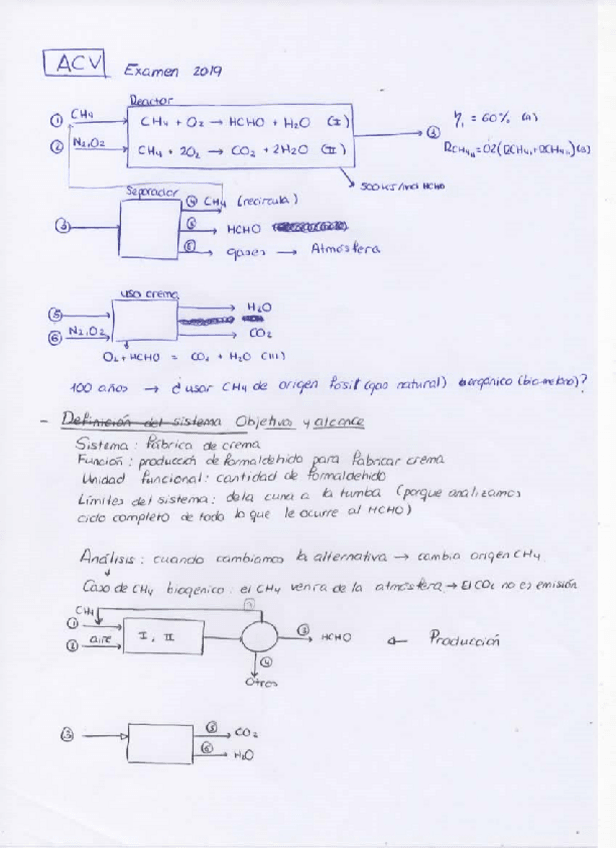 ACV Examen 2019
Reactor
① CH₄ CH₄ + O₂ → HCHO + H₂O (I)
② N₂, O₂ CH₄ + 2O₂ → CO₂ + 2H₂O (II)
= 60% (a)
500 KJ/mol HCHO
Separador
④ CH₄ (recircula)
③ ⑤ HCHO
gases → Atmósfera
uso crema
⑤ H₂O
⑥ N₂, O₂ CO₂
O₂ + HCHO = CO₂ + H₂O (III)
100 años → ¿usar CH₄ de origen fósil (gas natural)
- Definición del sistema Objetivos y alcance
Sistema: Fábrica de crema
Función: producción de formaldehído para fabricar crema
Unidad funcional: cantidad de formaldehído
Límites del sistema: de la cuna a la tumba (porque analizamos
ciclo completo de todo lo que le ocurre al HCHO)
Análisis: cuando cambiamos la alternativa → cambia origen CH₄
Caso de CH₄ biogénico: el CH₄ vendrá de la atmósfera → El CO₂ no es emisión
CH₄
① I, II ③ HCHO ← Producción
② aire
④
Otros
③ ⑤ CO₂
⑥ H₂O